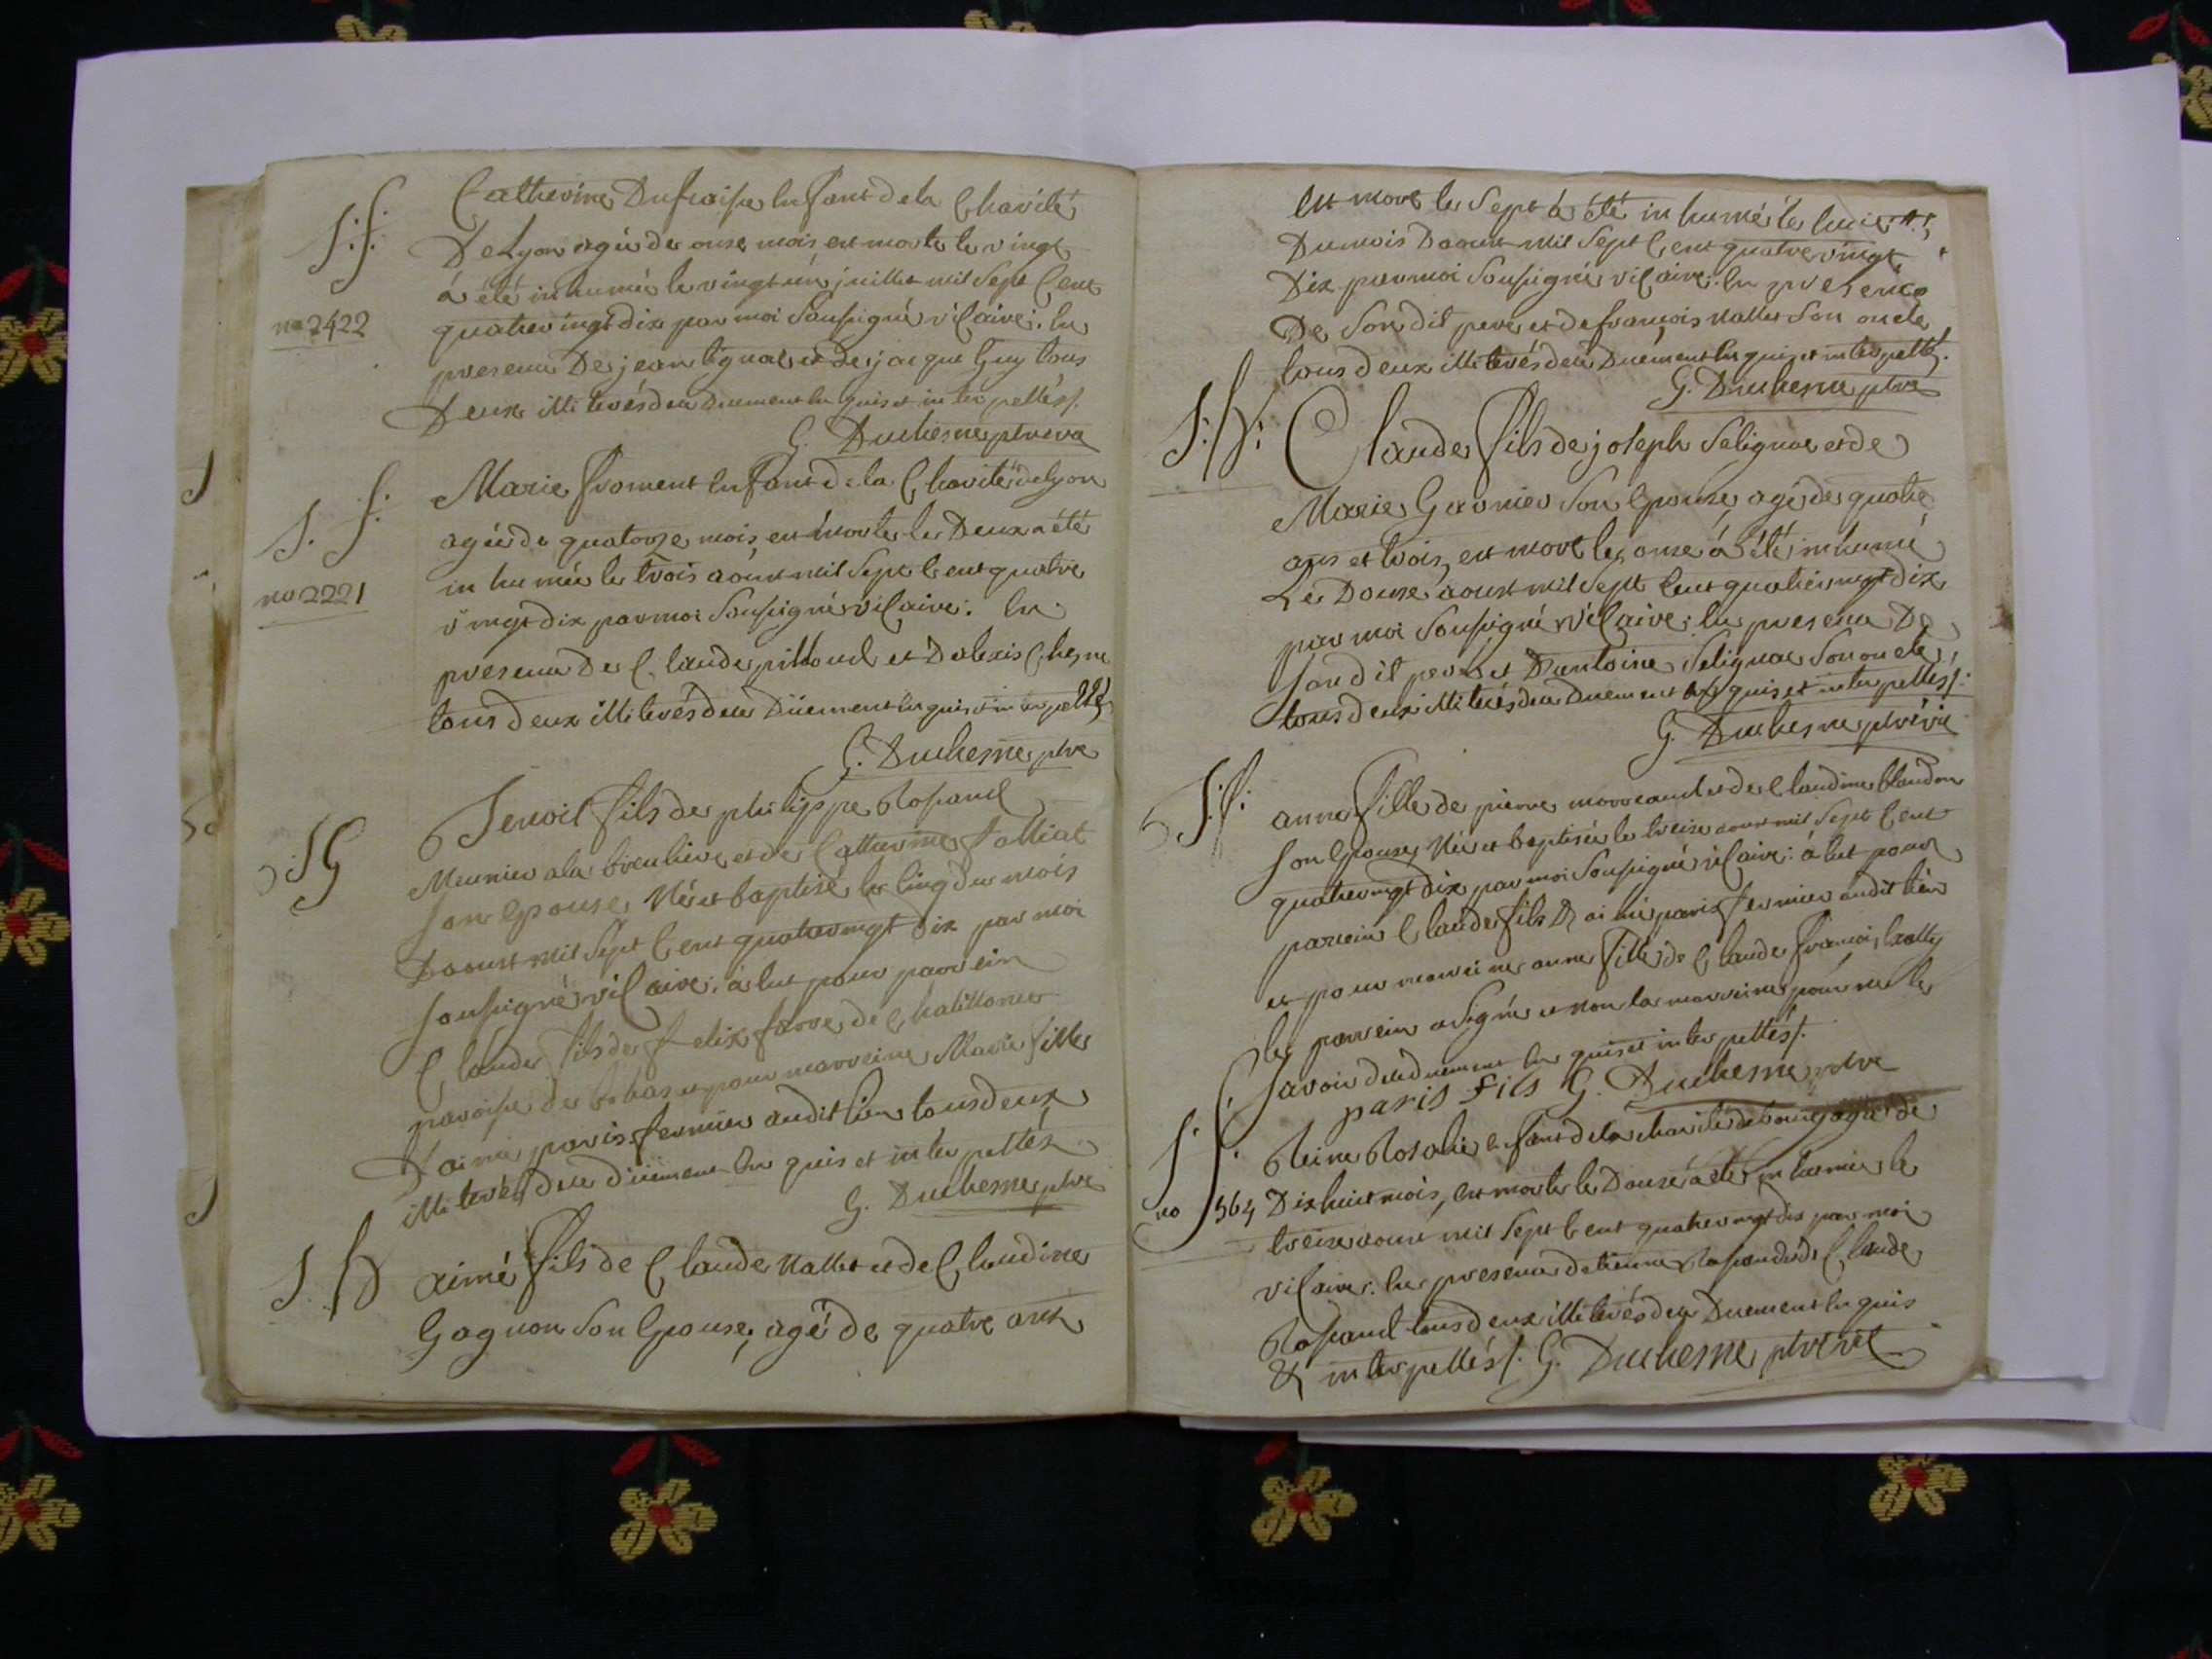 S. f.
Catherine Dufraise enfant dela Charité
De Lyon agée de onse mois est morte le vingt
no 2422
á été inhumée le vingt un juillet mil Sept Cent
quatrevingt dix par moi Sousigné viCaire. en
presence De jean Lignac et de jacque Guy tous
Deux illiterés deu Duement en quis et interpellés/.
G. Duchesne ptre va
S. f.
no 2221
Marie froment enfant de la Charité de lyon
agée de quatorze mois, est morte le Deux a été
in humée le trois aoust mil Sept Cent quatre
vingt dix par moi Sousigné viCaire. en
presence de Claude pittoud et Dalexis Chesne
tous deux illiterés deu Duement en quis et interpellés
G. Duchesne ptre
S G
Benoit fils de philippe Rosand
Meunier ala et de Catherine falliat
Son Epouse, Né et baptisé le Cinq du mois
Daoust mil Sept Cent quatrevingt dix par moi
sousigné viCaire. á eut pour parrein
Claude fils de felix farre de
paroise de et pour marreine Marie fille
Daimé paris fermier audit lieu tous deux
illiterés deu düement en quis et interpellés
G. Duchesne ptre
S. h
aimé fils de Claude Nallet et de Claudine
Gagnon Son Epouse, agé de quatre ans
est mort le Sept á été in humé le huit
Du mois Daoust mil Sept Cent quatrevingt
Dix par moi Sousigné viCaire. en presence
De Son dit pere et de francois Nallet Son oncle
tous deux illiterés deu Duement en quis et interpellés.
G. Duchesne ptre
S. h.
Claude fils de joseph Selignac et de
Marie Garnier Son Epouse, agé de quatre
ans et trois, est mort le onse á été inhumé
Le Douse aoust mil Sept Cent quatrevingt dix
par moi Sousigné viCaire. en presence De
Son dit pere et Dantoine Selignac Son oncle,
tous deux illiterés deu Duement en quis et interpellés/.
G. Duchesne ptre vic
S. f.
anne fille de pierre morreaud et de Claudine blandon
Son Epouse, Née et baptisée le treise aoust mil Sept Cent
quatrevingt dix par moi Sousigné viCaire. á eut pour
parrein Claude fils D aimé paris fermier audit lieu
et pour marreine anne fille de Claude francois
le parrein a Signé et non la marreine pour ne le
Savoir deu duement en quis et interpellés/.
paris fils G. Duchesne ptre
S. f.
no 564
Reine Rosalie enfant dela charité de bourg agée de
Dix huit mois, est morte le Douse á été in humée le
treise aoust mil Sept Cent quatrevingt dix par moi
viCaire. en presence detienne Rosand et de Claude
Rosand tous deux illiterés deu Duement en quis
& interpellés/. G. Duchesne ptre vic